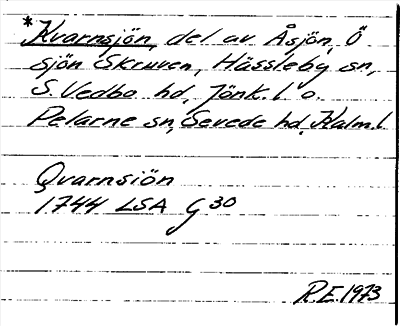 *Kvarnsjön, del av Åsjön, Ö
sjön Skruven, Hässleby sn,
S. Vedbo hd, Jönk. l o.
Pelarne sn, Sevede hd, Kalm. l.
Qvarnsiön
1744 LSA G 30
R.E. 1973